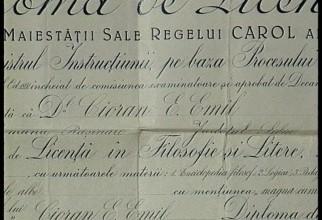 Diploma de Licen
MAIESTĂŢII SALE REGELUI CAROL al
istrul Instrucţiunii, pe baza Procesului
încheiat de comisiunea examinatoare şi aprobat de Decan
că Dl Cioran E. Emil
Răşinari Judeţul
de Licenţă in Filosofie şi Litere,
cu următoarele materii:
albe cu menţiunea magna cum
lui Cioran E. Emil Diploma d